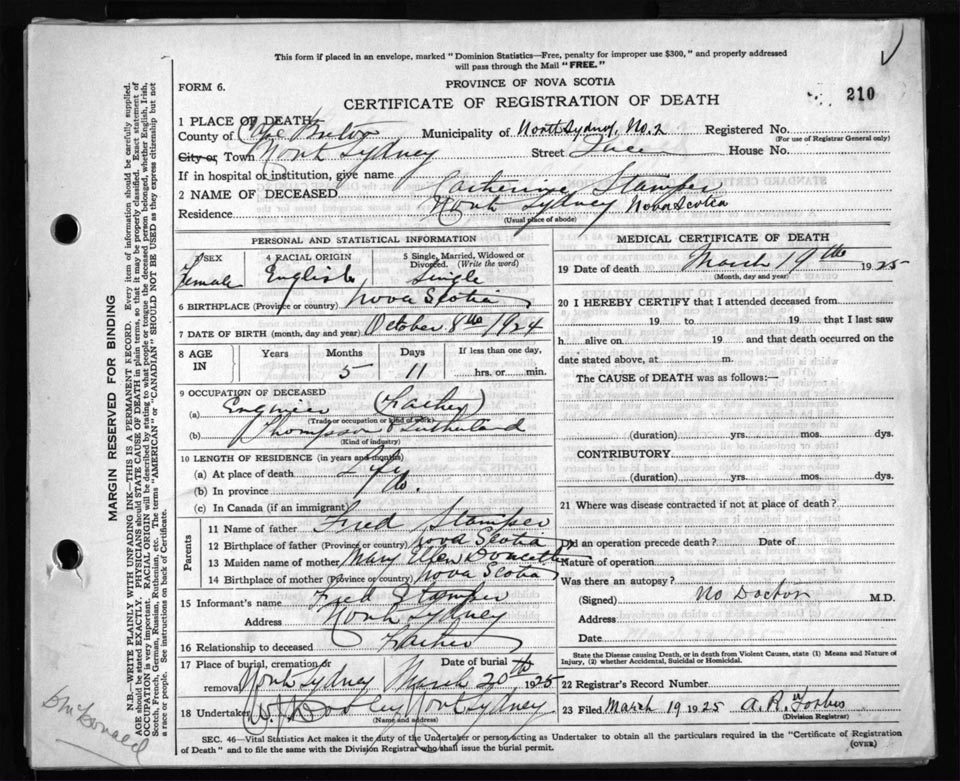 This form if placed in an envelope, marked "Dominion Statistics—Free, penalty for improper use $300," and properly addressed
will pass through the Mail "FREE."
FORM 6.
PROVINCE OF NOVA SCOTIA
210
CERTIFICATE OF REGISTRATION OF DEATH
1 PLACE OF DEATH:
County of Cape Breton Municipality of North Sydney, No. 2 Registered No.
(For use of Registrar General only)
City or Town North Sydney Street House No.
If in hospital or institution, give name
2 NAME OF DECEASED Catherine Stamper
Residence North Sydney Nova Scotia
(Usual place of abode)
PERSONAL AND STATISTICAL INFORMATION
3 SEX 4 RACIAL ORIGIN 5 Single, Married, Widowed or
Divorced. (Write the word)
Female English Single
6 BIRTHPLACE (Province or country) Nova Scotia
7 DATE OF BIRTH (month, day and year) October 8th 1924
8 AGE IN Years Months Days If less than one day,
5 11 hrs. or min.
9 OCCUPATION OF DECEASED
(a) Engineer (Father)
(Trade or occupation or kind of work)
(b) Thompson & Sutherland
(Kind of industry)
10 LENGTH OF RESIDENCE (in years and months)
(a) At place of death Life
(b) In province Do.
(c) In Canada (if an immigrant)
Parents
11 Name of father Fred Stamper
12 Birthplace of father (Province or country) Nova Scotia
13 Maiden name of mother Mary Ellen
14 Birthplace of mother (Province or country) Nova Scotia
15 Informant's name Fred Stamper
Address North Sydney
16 Relationship to deceased Father
17 Place of burial, cremation or Date of burial
removal North Sydney March 20th 1925
18 Undertaker North Sydney
(Name and address)
MEDICAL CERTIFICATE OF DEATH
19 Date of death March 19th 1925
(Month, day and year)
20 I HEREBY CERTIFY that I attended deceased from
19 to 19 that I last saw
h alive on 19 and that death occurred on the
date stated above, at m.
The CAUSE of DEATH was as follows:—
(duration) yrs. mos. dys.
CONTRIBUTORY
(duration) yrs. mos. dys.
21 Where was disease contracted if not at place of death?
Did an operation precede death? Date of
Nature of operation
Was there an autopsy?
(Signed) No Doctor M.D.
Address
Date
State the Disease causing Death, or in death from Violent Causes, state (1) Means and Nature of
Injury, (2) whether Accidental, Suicidal or Homicidal.
22 Registrar's Record Number
23 Filed March 19 1925 A. R. Forbes
(Division Registrar)
SEC. 46—Vital Statistics Act makes it the duty of the Undertaker or person acting as Undertaker to obtain all the particulars required in the "Certificate of Registration
of Death" and to file the same with the Division Registrar who shall issue the burial permit.
(OVER)
MARGIN RESERVED FOR BINDING
N.B.—WRITE PLAINLY WITH UNFADING INK—THIS IS A PERMANENT RECORD. Every item of information should be carefully supplied.
AGE should be stated EXACTLY. PHYSICIANS should STATE CAUSE OF DEATH in plain terms, so that it may be properly classified. Exact statement of
OCCUPATION is very important. RACIAL ORIGIN will be described by stating to what people or tongue the deceased person belonged, whether English, Irish,
Scotch, French, German, Russian, Ruthenian, etc. The terms "AMERICAN" or "CANADIAN" SHOULD NOT BE USED as they express citizenship but not
a race or people. See instructions on back of Certificate.